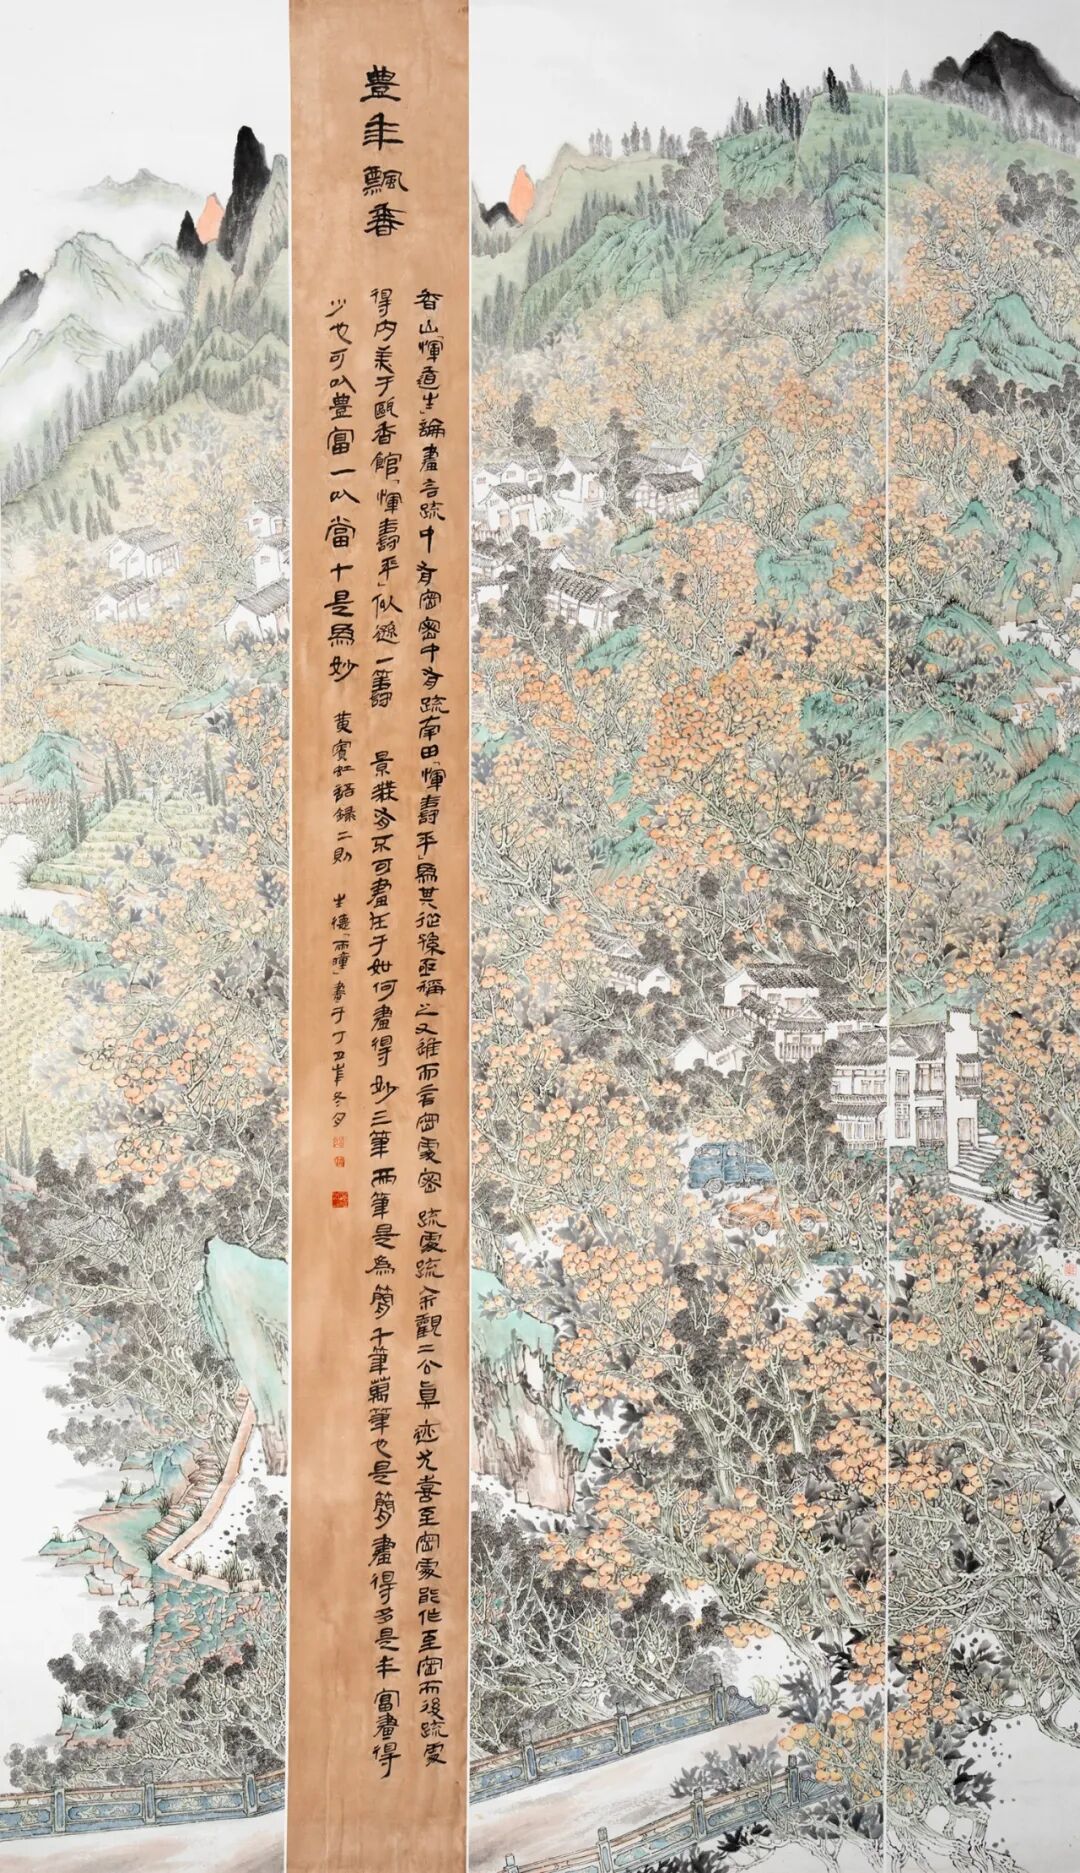 豊年飄香
香山「惲道生」論畫言疏中有密密中有疏南田「惲壽平」爲其從孫亟稱之又進而言密處密疏處疏余觀二公眞迹尤喜至密處能作至密而後疏處
得內美于甌香館「惲壽平」似遜一籌 景有不可畫在于如何畫得妙三筆兩筆是爲簡千筆萬筆也是簡畫得多是丰富畫得
少也可以豊富一以當十是爲妙 黃賓虹語錄二則 生德「雨瞳」畫于丁丑年冬夕